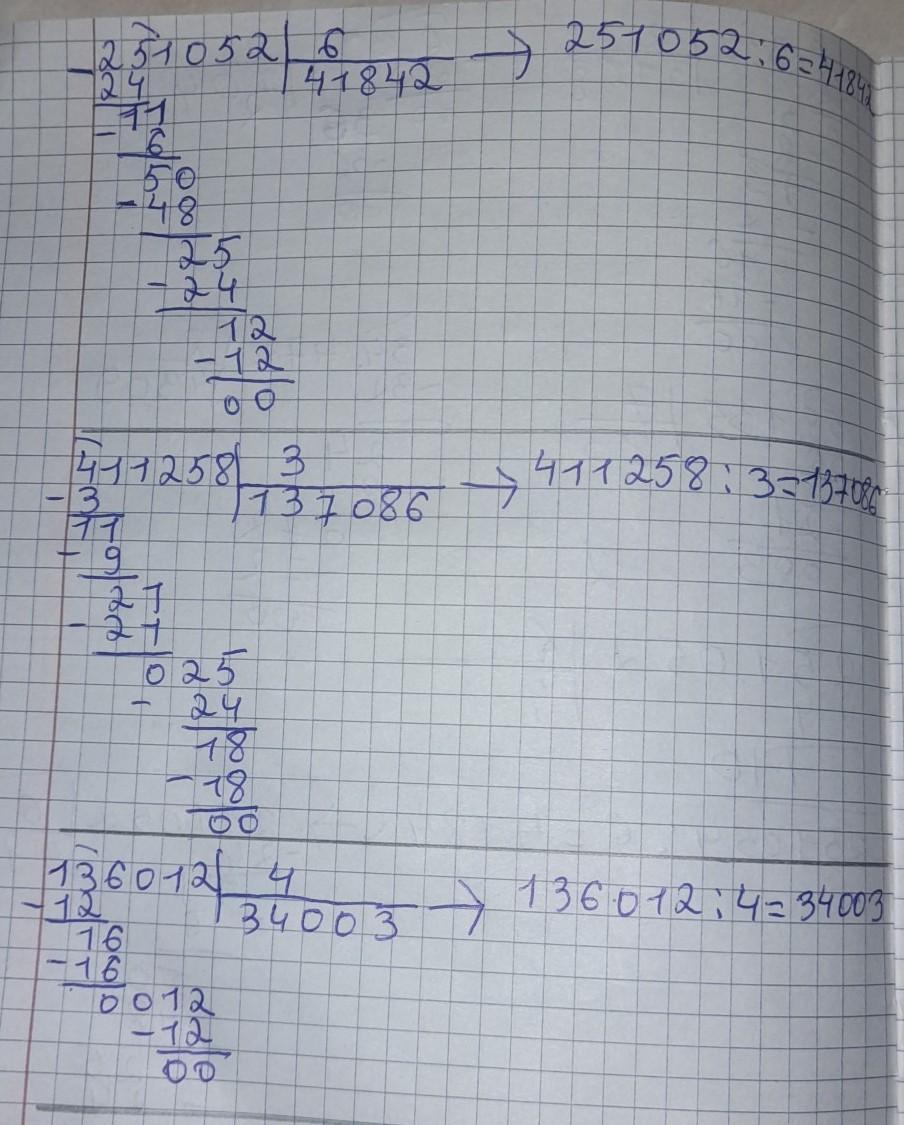 251052 6 → 251052:6=41842
- 24 41842
11
- 6
50
- 48
25
- 24
12
- 12
00
411258 3 → 411258:3=137086
- 3 137086
11
- 9
21
- 21
025
- 24
18
- 18
00
136012 4 → 136012:4=34003
- 12 34003
16
- 16
0012
- 12
00